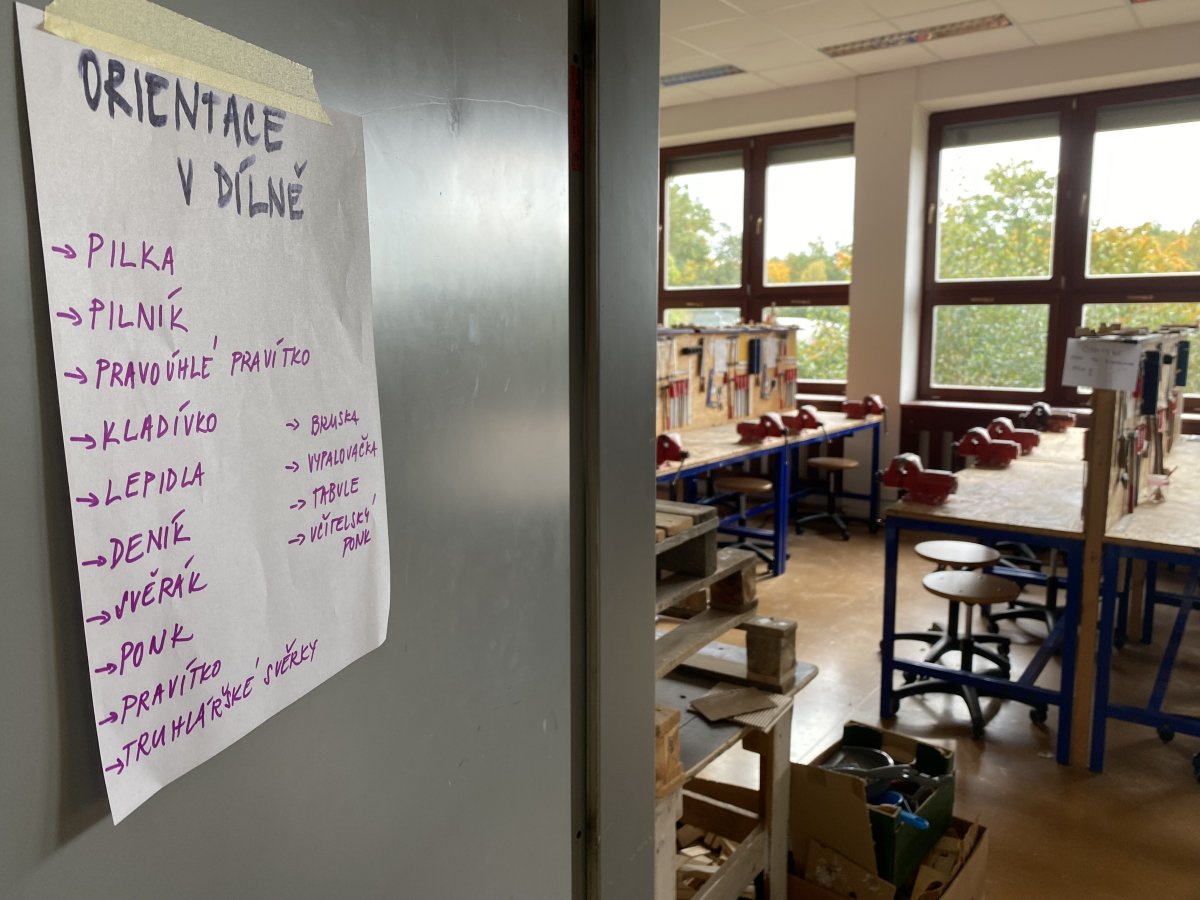 ORIENTACE
V DÍLNĚ
→ PILKA
→ PILNÍK
→ PRAVOÚHLÉ PRAVÍTKO
→ KLADÍVKO
→ LEPIDLA
→ DENÍK
→ SVĚRÁK
→ PONK
→ PRAVÍTKO
→ TRUHLÁŘSKÉ SVĚRKY
→ BRUSKA
→ VYPALOVAČKA
→ TABULE
→ UČITELSKÝ
PONK